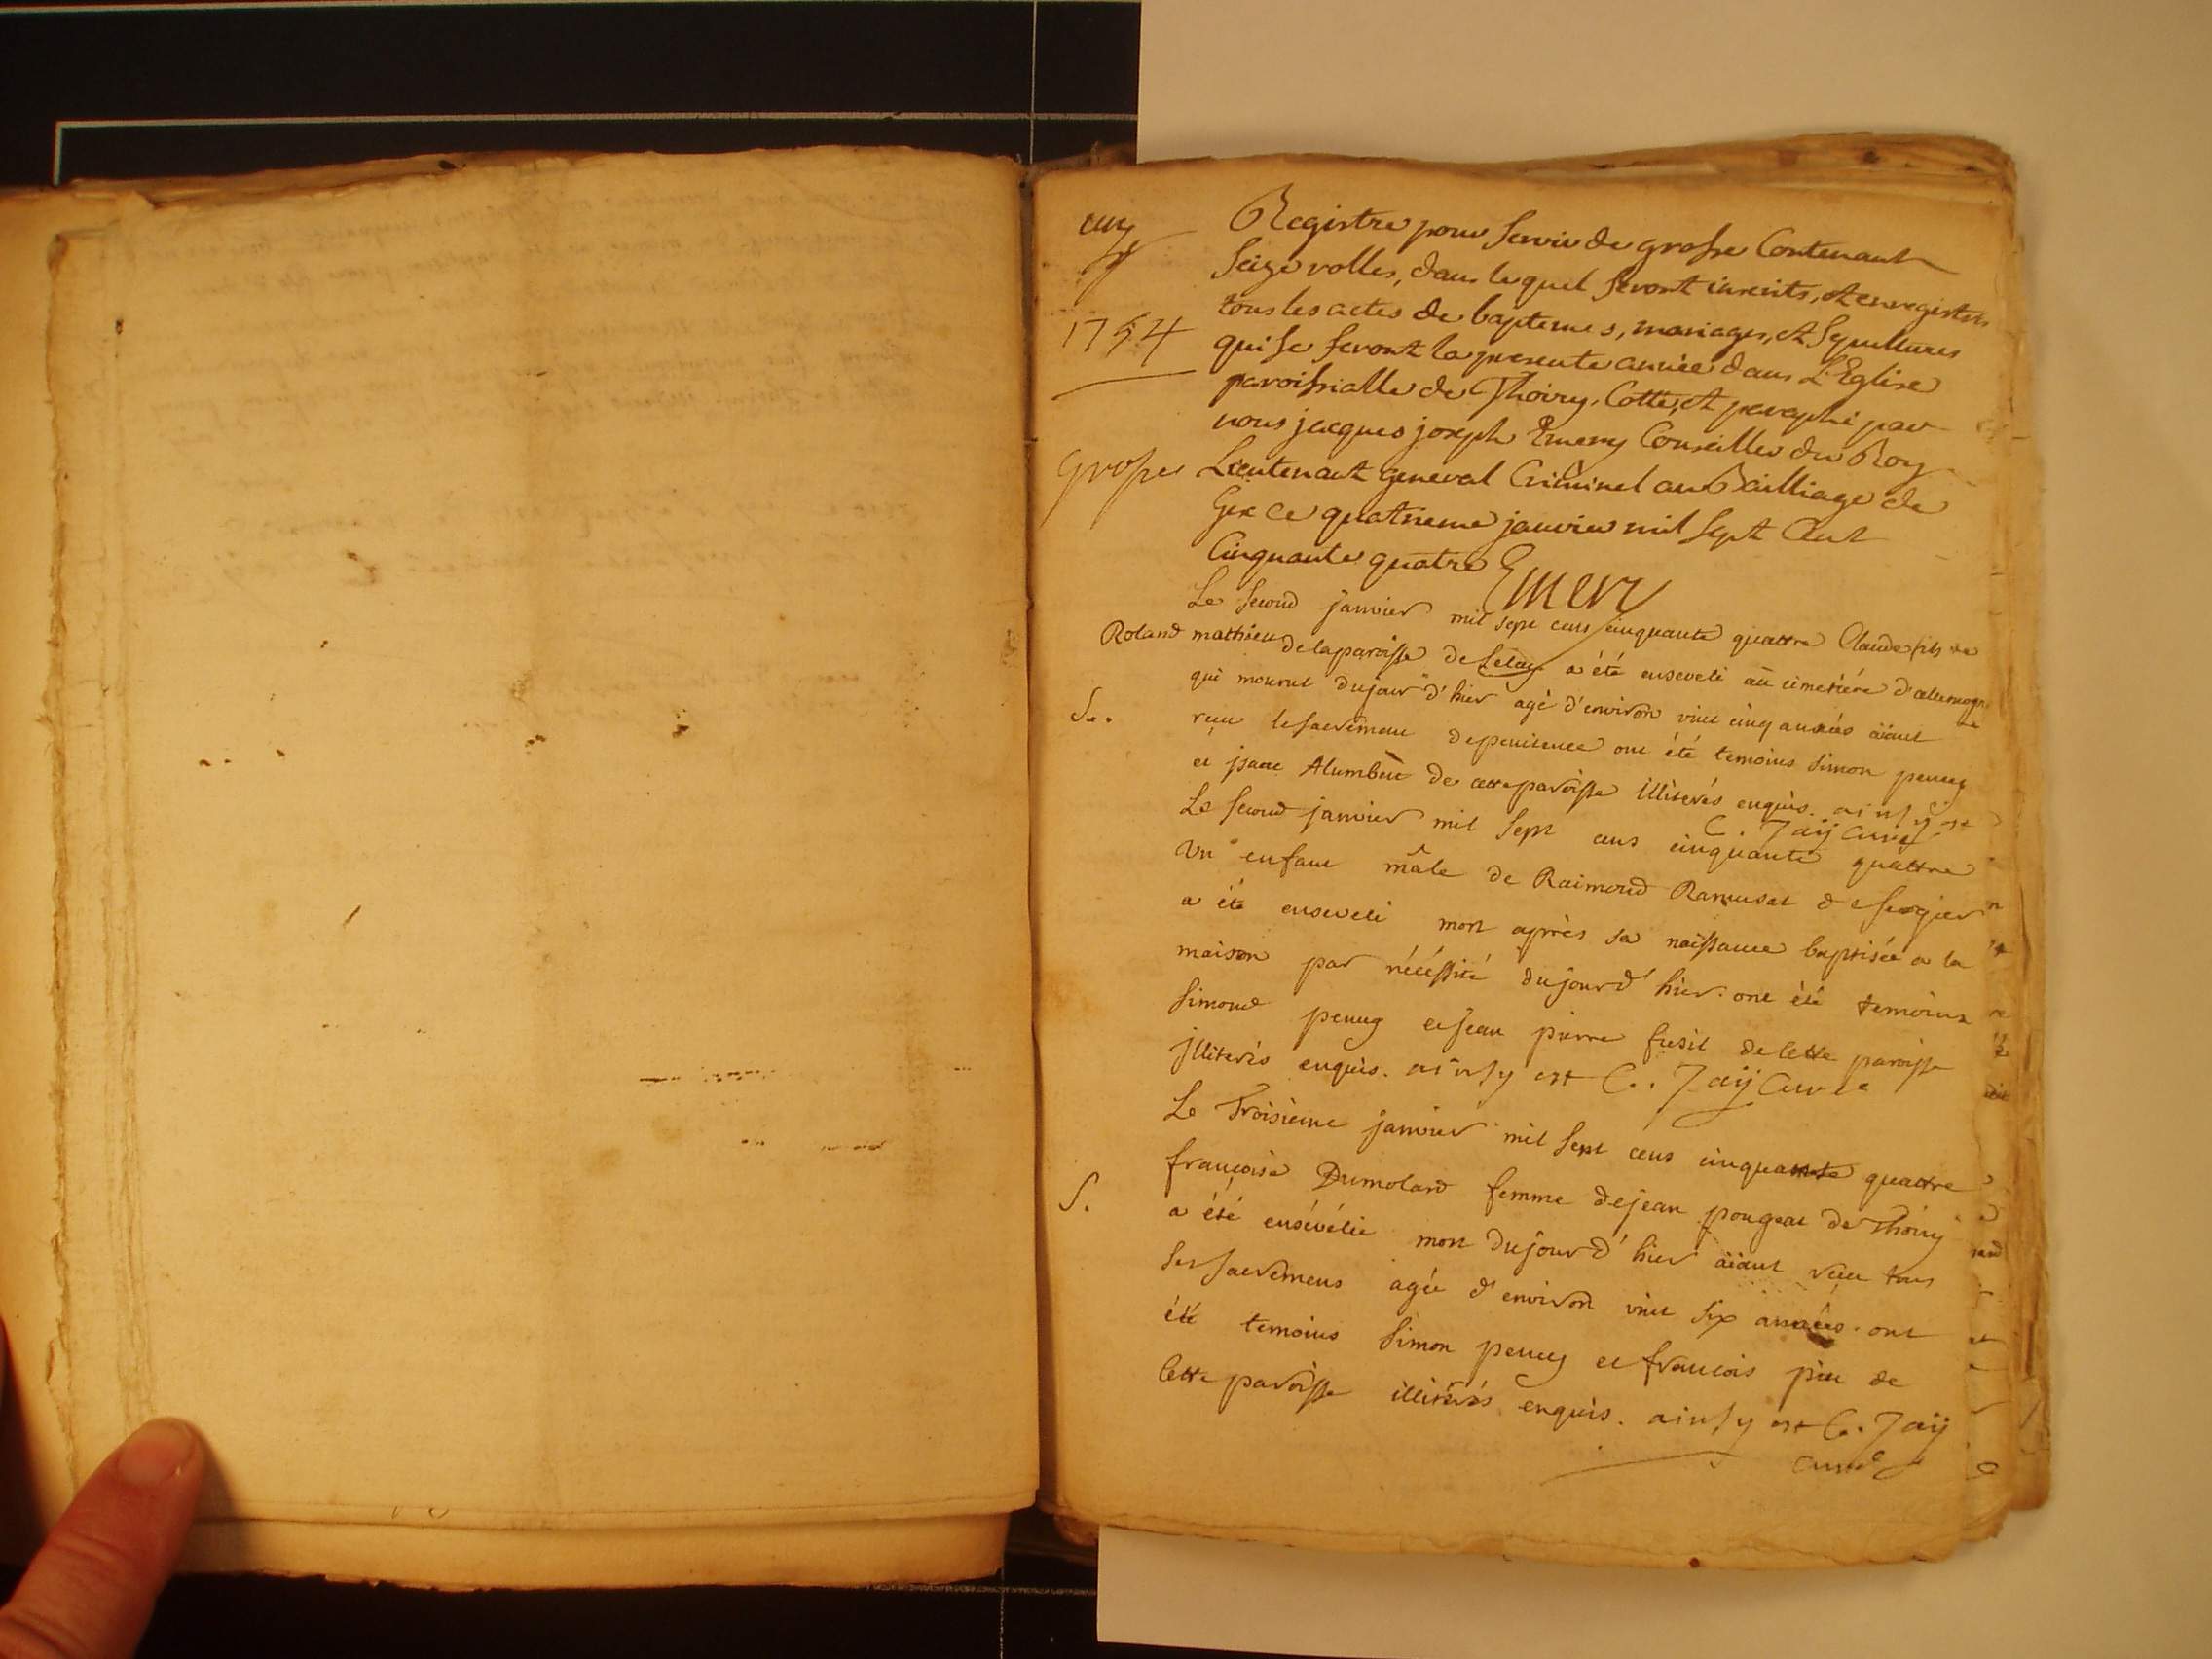 Registre pour servir de grosse Contenant
seize rolles, dans lequel seront inscrits, et enregistrés
tous les actes de baptemes, mariages, et sepultures
1754
qui se feront la presente année dans L'Eglise
paroissialle de Thoiry, Cotté, et paraphé par
nous jacques joseph Emery Conseiller du Roy
grosse
Lieutenant general Criminel au Bailliage de
Gex ce quatrieme janvier mil sept Cent
Cinquante quatre Emery
Le second janvier mil sept cens cinquante quattre Claude fils de
Roland mathieu de la paroisse de a été enseveli au cimetiére
qui mourut du jour d'hier agé d'environ vint cinq années aïant
S.
reçu le sacrement de penitence ont été temoins simon penny
et jsaac de cette paroisse illiterés enquis. ainsy est
C. Jaÿ Curé
Le second janvier mil sept cens cinquante quattre
un enfant mâle de Raimond Ramusat
a été enseveli mort après sa naissance baptisée a la
maison par nécéssité du jour d'hier. ont été temoins
simond penny et jean pierre fusil de cette paroisse
jlliterés enquis. ainsy est C. Jaÿ Curé
Le Troisième janvier mil sept cens cinquante quattre
françoise Dumolard femme de jean pougeat de Thoiry
S.
a été ensévélie mort du jour d'hier aïant reçu tous
ses sacremens agée d'environ vint six années. ont
été temoins simon penny et francois de
Cette paroisse illiterés enquis. ainsy est C. Jaÿ
curé